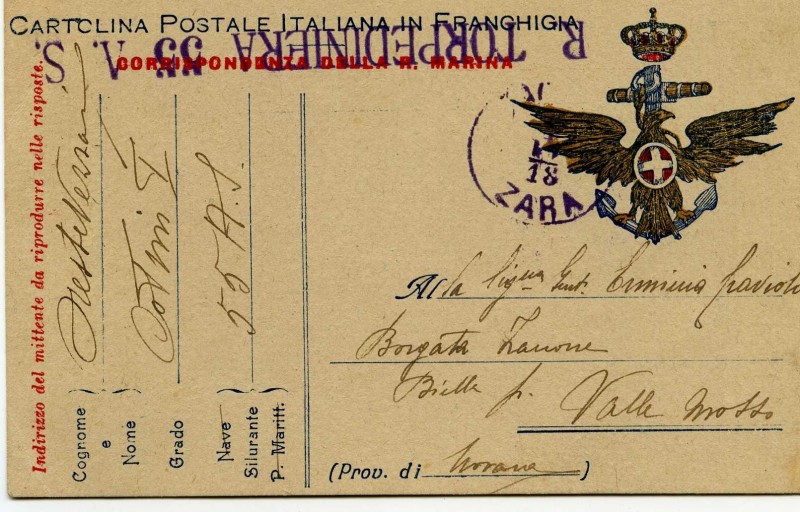 CARTOLINA POSTALE ITALIANA IN FRANCHIGIA
R. TORPEDINIERA 55 A. S.
CORRISPONDENZA DELLA R. MARINA
Indirizzo del mittente da riprodurre nelle risposte.
Cognome e Nome
Grado
Nave Silurante P. Maritt.
55 A.S.
18
ZARA
Alla Sig.na Gent. Erminia
Borgata Zanone
Bielle p. Valle Mosso
(Prov. di Novara)